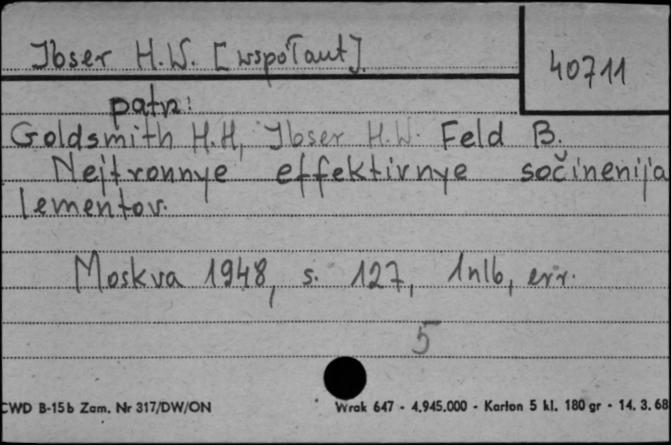 Ibser H.W. [współaut].
40711
patrz:
Goldsmith H.H, Ibser H.W. Feld B.
Nejtronnye effektivnye sočinenija
lementov.
Moskva 1948, s. 127, 1nlb, err.
5
CWD B-15b Zam. Nr 317/DW/ON
Wrak 647 - 4.945.000 - Karton 5 kl. 180 gr - 14. 3. 68